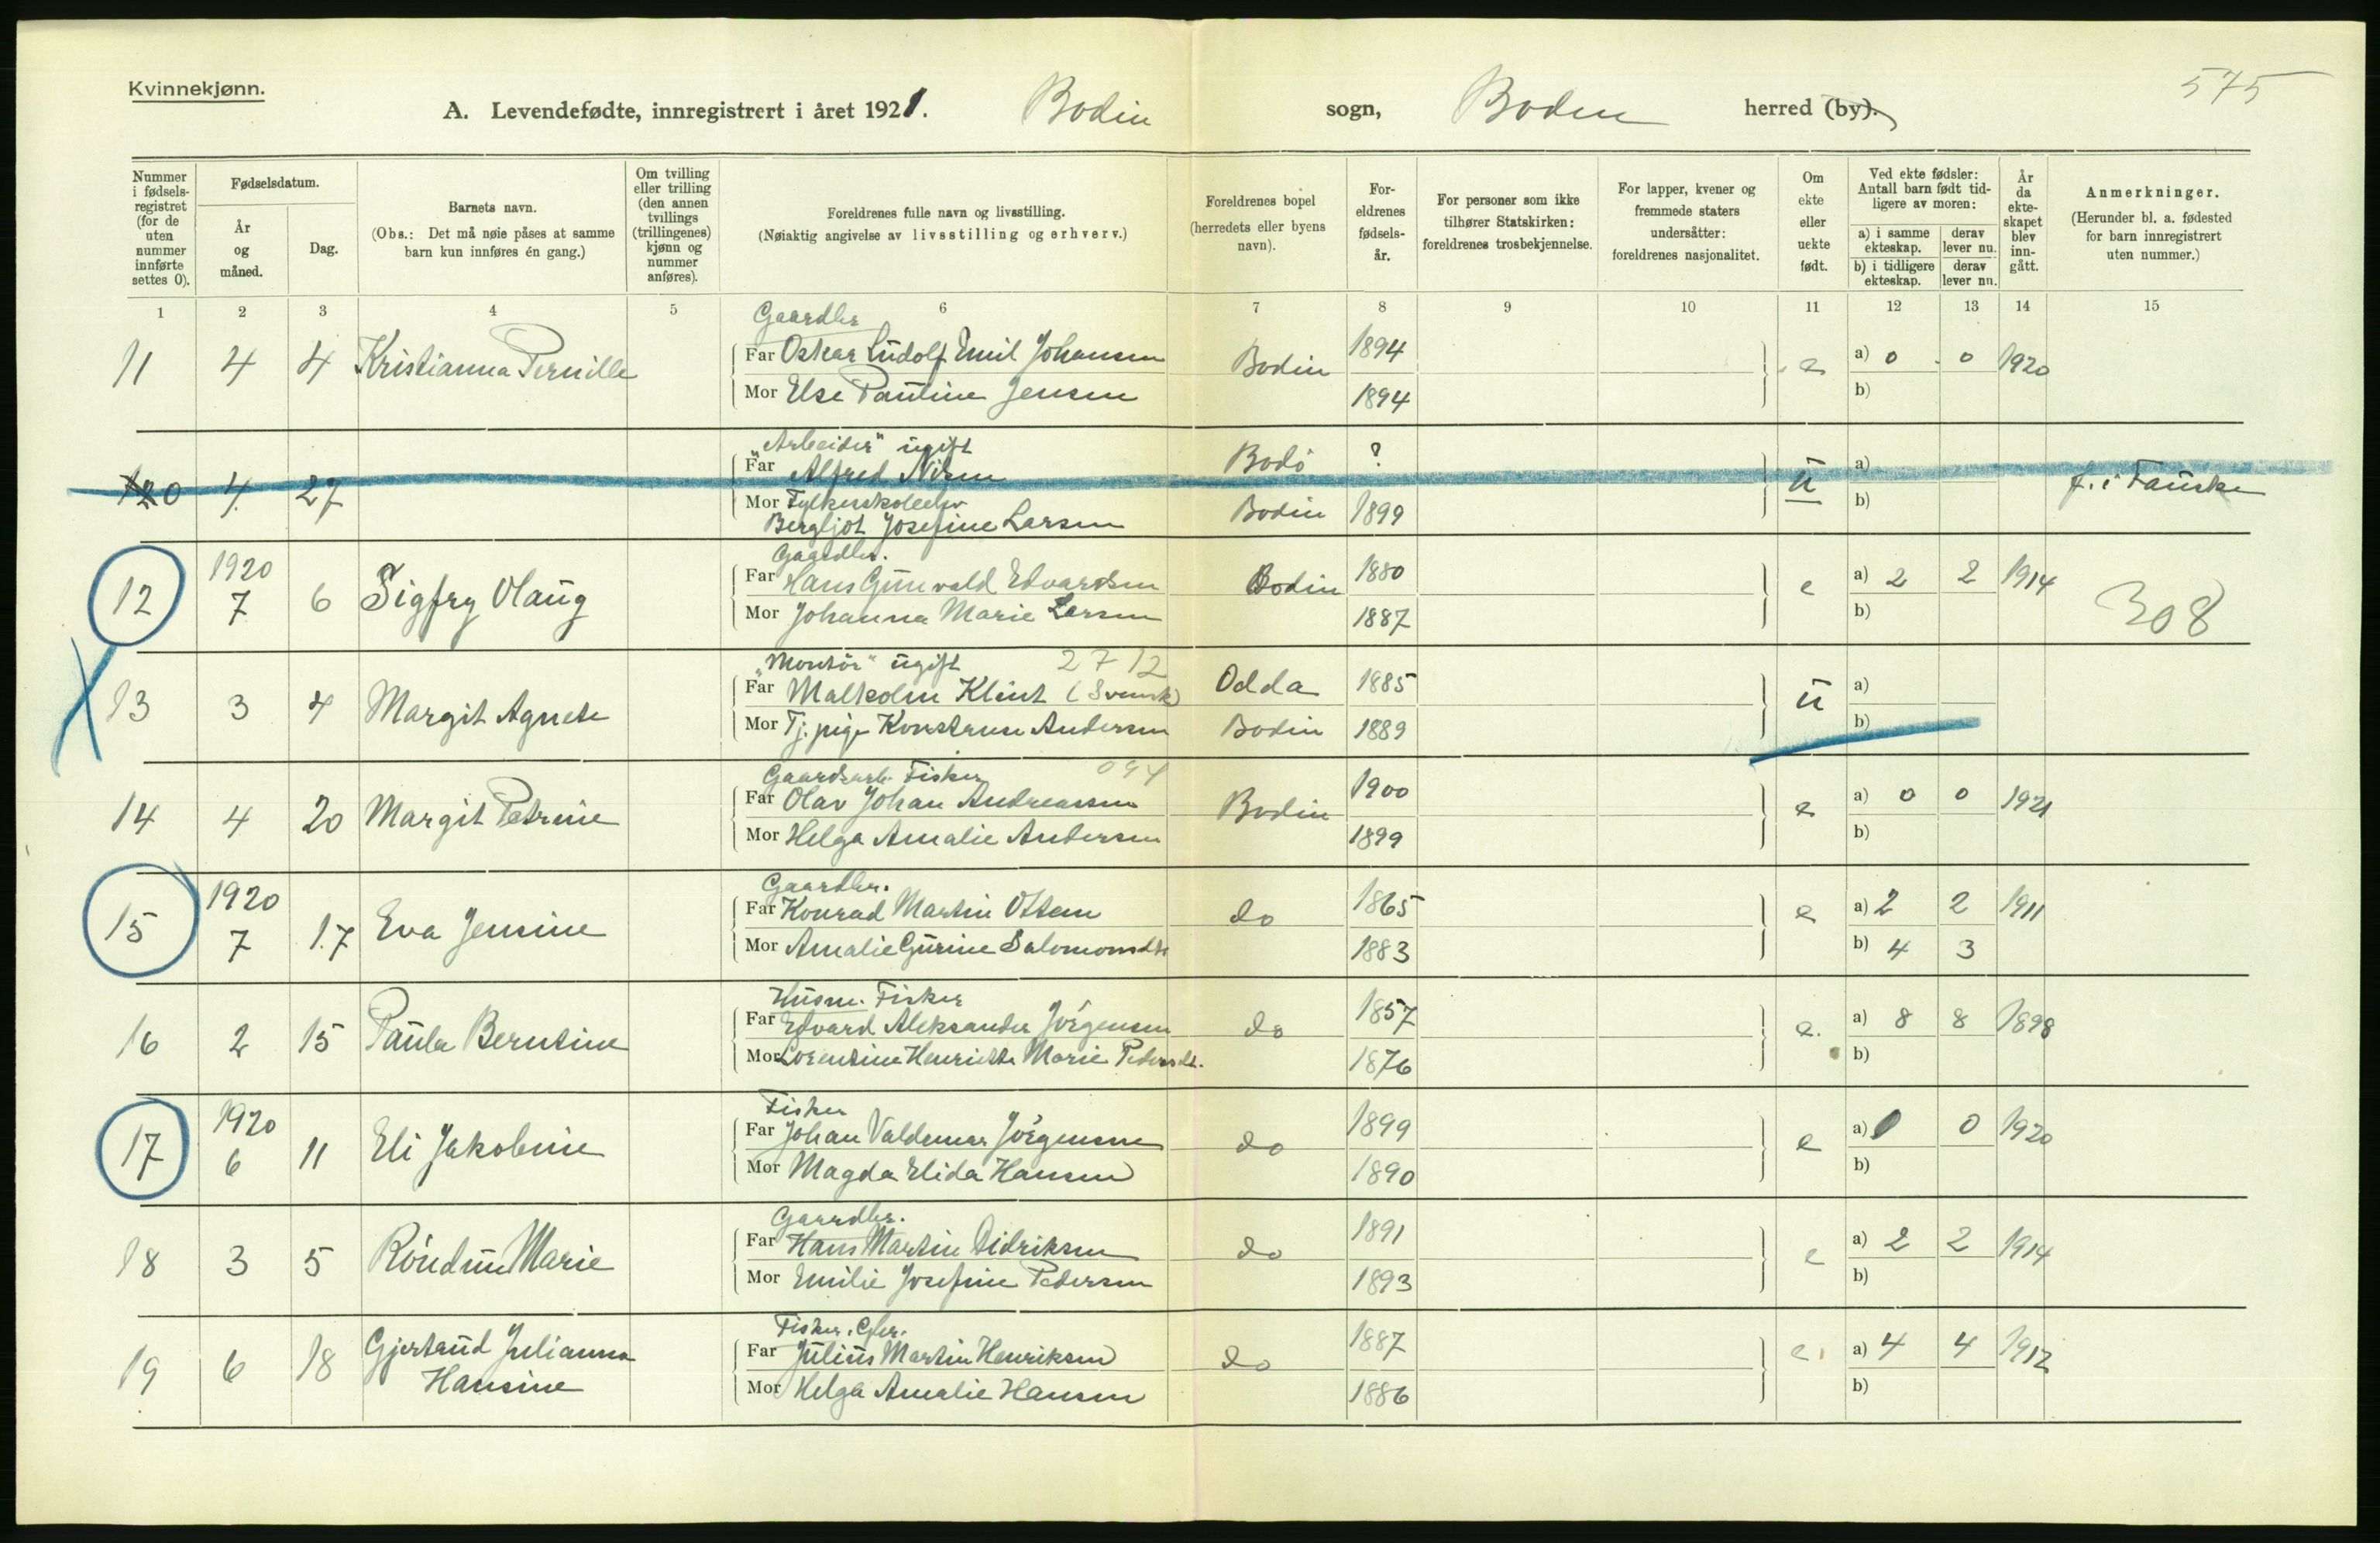 Kvinnekjønn.
575
A. Levendefødte, innregistrert i året 1921. Bodin sogn, Bodin herred (by).
Nummer i fødselsregistret (for de uten nummer innførte settes 0).
Fødselsdatum.
År og måned.
Dag.
Barnets navn.
(Obs.: Det må nøie påses at samme barn kun innføres én gang.)
Om tvilling eller trilling (den annen tvillings (trillingenes) kjønn og nummer anføres).
Foreldrenes fulle navn og livsstilling.
(Nøiaktig angivelse av livsstilling og erhverv.)
Foreldrenes bopel (herredets eller byens navn).
Foreldrenes fødselsår.
For personer som ikke tilhører Statskirken: foreldrenes trosbekjennelse.
For lapper, kvener og fremmede staters undersåtter: foreldrenes nasjonalitet.
Om ekte eller uekte født.
Ved ekte fødsler: Antall barn født tidligere av moren:
a) i samme ekteskap.
derav lever nu.
b) i tidligere ekteskap.
derav lever nu.
År da ekteskapet blev inngått.
Anmerkninger.
(Herunder bl. a. fødested for barn innregistrert uten nummer.)
1 2 3 4 5 6 7 8 9 10 11 12 13 14 15
Gaardbr
11 4 4 Kristianna Pernille Far Oskar Ludolf Emil Johansen Bodin 1894 e a) 0 0 1920
Mor Else Pauline Jensen 1894 b)
"Arbeider" ugift
0 4. 27 Far Alfred Nilsen Bodö ? u a) f. i Fauske
Mor Fylkesskoleelev
Bergljot Josefine Larsen Bodin 1899 b)
Gaardbr.
12 1920 7 6 Sigfry Olaug Far Hans Gunvald Edvardsen Bodin 1880 e a) 2 2 1914 308
Mor Johanna Marie Larsen 1887 b)
"Montör" ugift 27 12
13 3 4 Margit Agnete Far Malkolm Klint (Svensk) Odda 1885 u a)
Mor Tj. pige Konstanse Andersen Bodin 1889 b)
Gaardsarb. Fisker 094
14 4 20 Margit Petrine Far Olav Johan Andreassen Bodin 1900 e a) 0 0 1921
Mor Helga Amalie Andersen 1899 b)
Gaardbr.
15 1920 7 17 Eva Jensine Far Konrad Martin Ottem do 1865 e a) 2 2 1911
Mor Amalie Gurine Salomonsdtr 1883 b) 4 3
Husm. Fisker
16 2 15 Paula Berntine Far Edvard Aleksander Jörgensen do 1857 e. a) 8 8 1898
Mor Lorentine Henriette Marie Pedersdt. 1876 b)
Fisker
17 1920 6 11 Eli Jakobine Far Johan Valdemar Jörgensen do 1899 e a) 0 0 1920
Mor Magda Elida Hansen 1890 b)
Gaardbr.
18 3 5 Röidun Marie Far Hans Martin Didriksen do 1891 e a) 2 2 1914
Mor Emilie Josefine Pedersen 1893 b)
Fisker, Gbr.
19 6 18 Gjertrud Julianna Far Julius Martin Henriksen do 1887 e a) 4 4 1912
Hansine Mor Helga Amalie Hansen 1886 b)